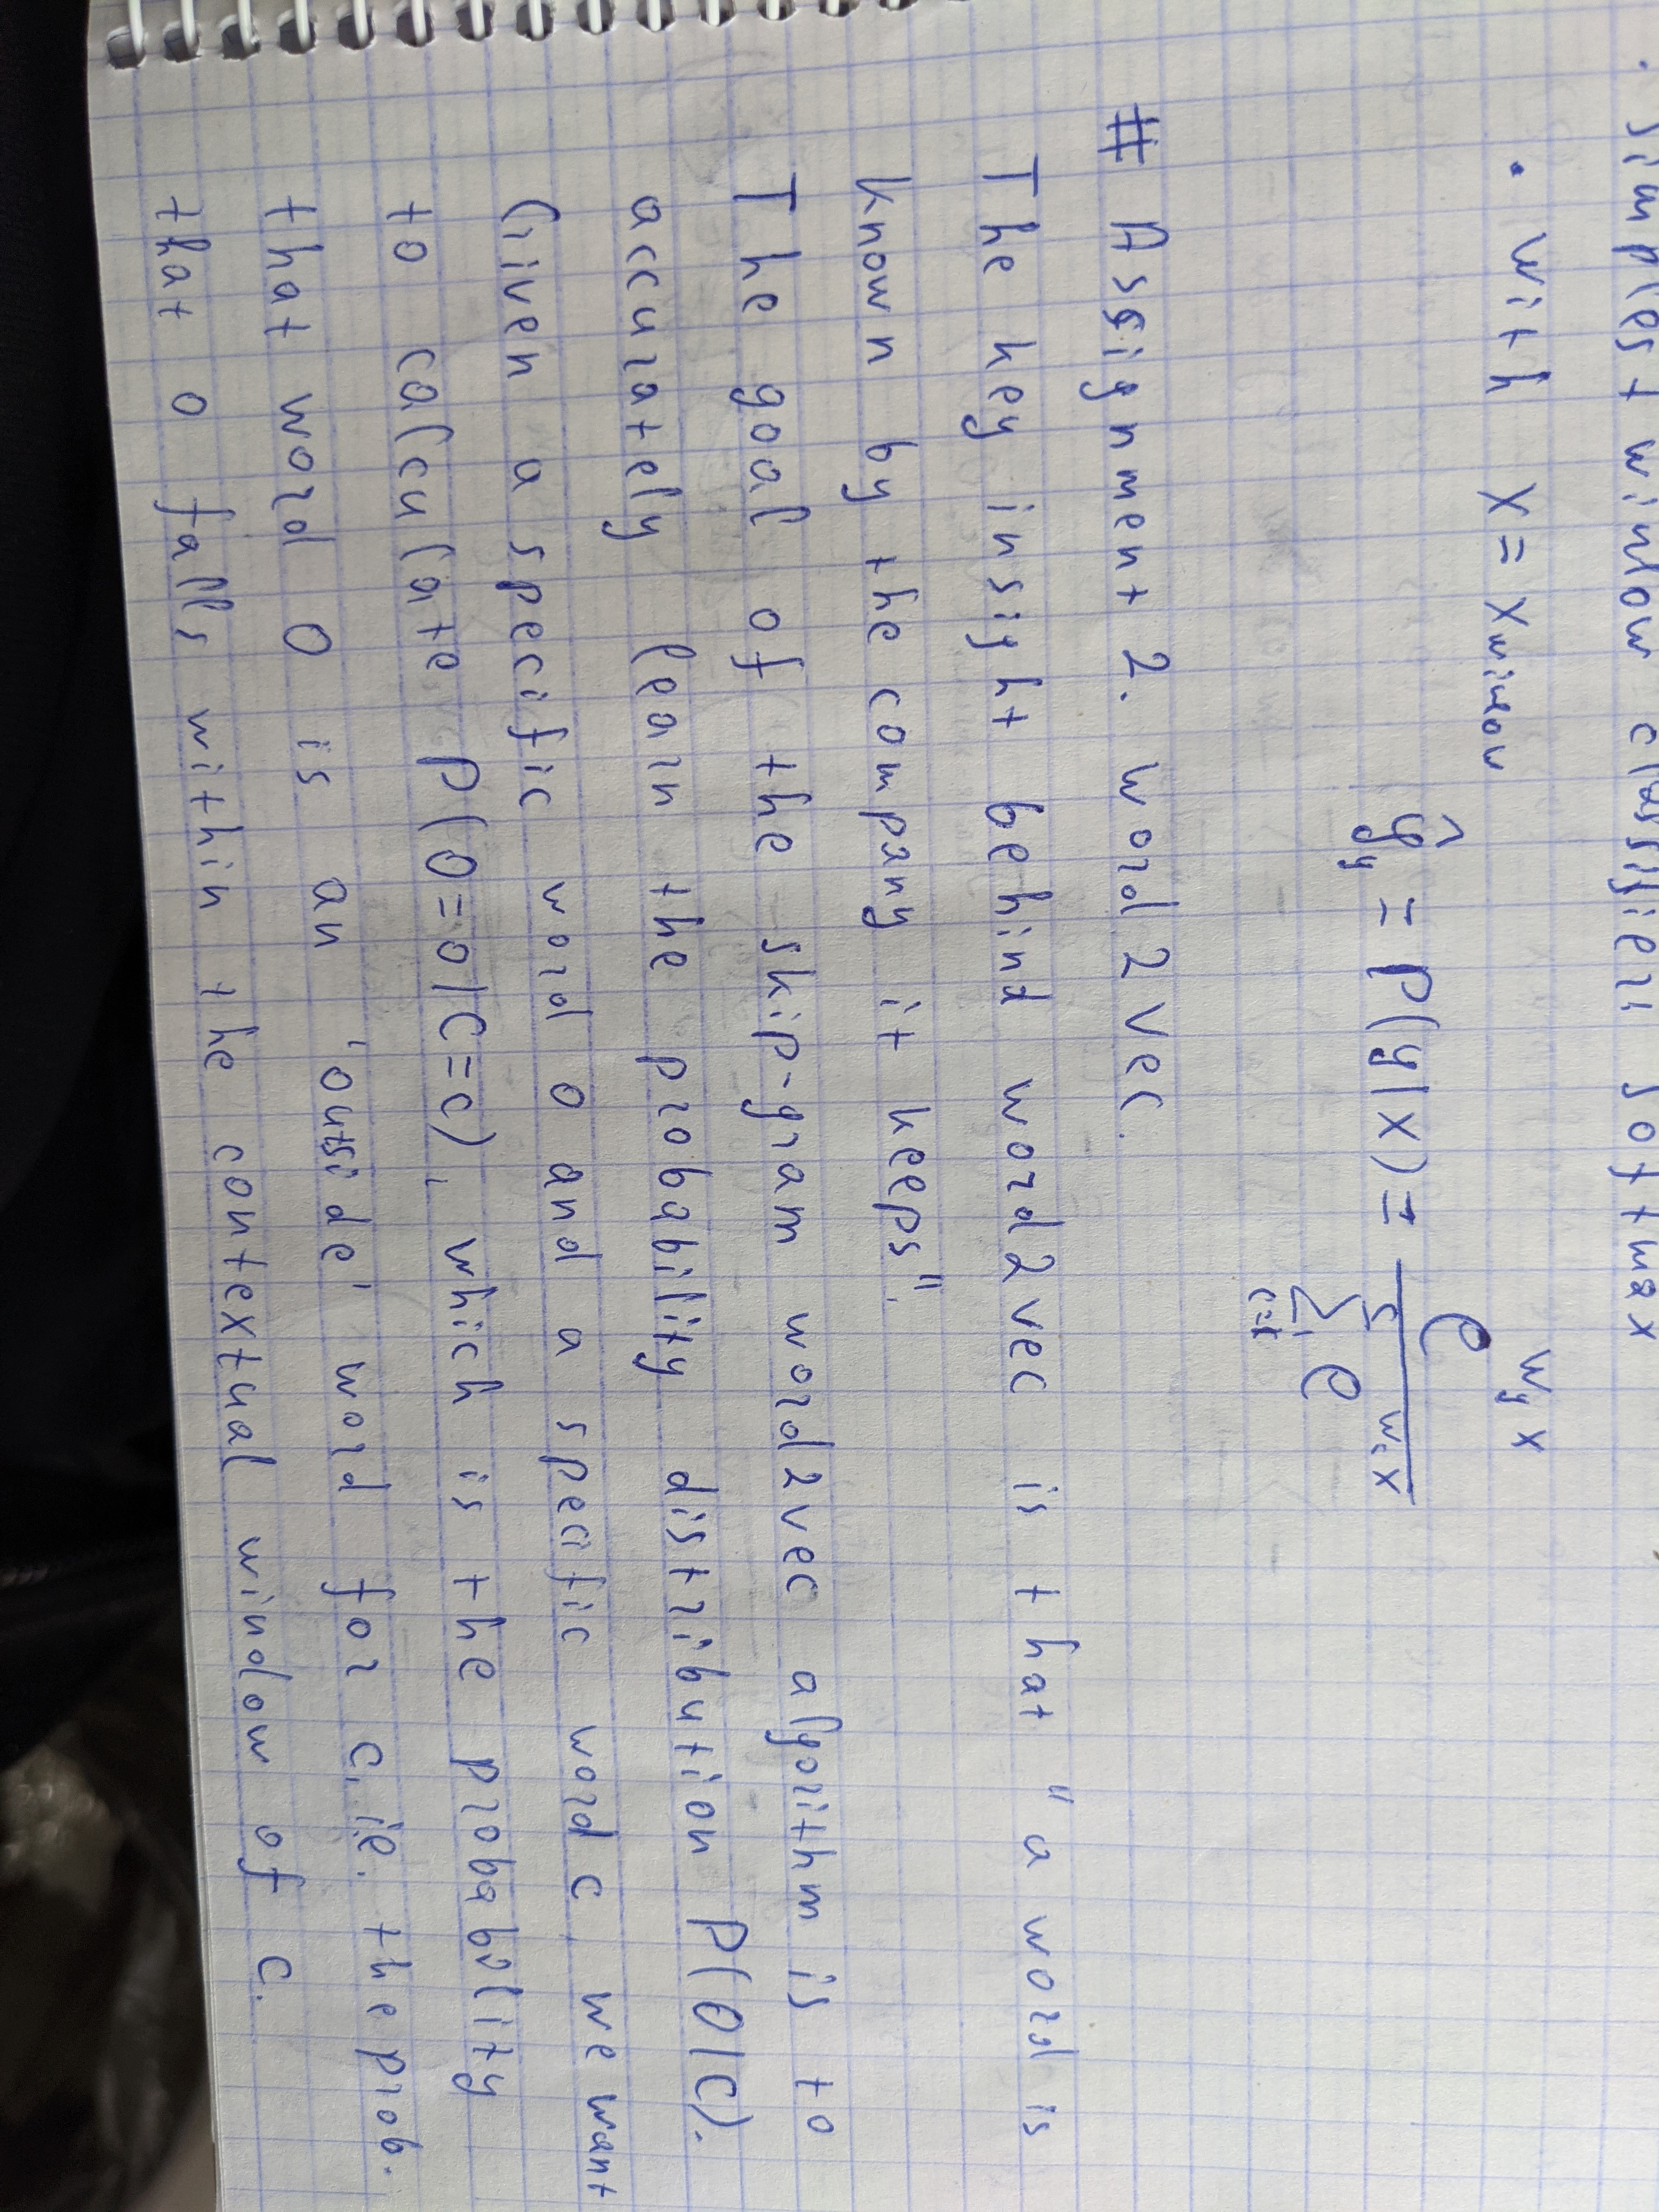 · Simplest window classifier: Softmax
· with x = x window
ŷ_y = P(y|x) = e^{W_y x} / Σ_{c=1}^{C} e^{W_c x}
# Assignment 2. word2vec.
The key insight behind word2vec is that "a word is
known by the company it keeps".
The goal of the skip-gram word2vec algorithm is to
accurately learn the probability distribution P(O|C).
Given a specific word o and a specific word c we want
to calculate P(O=o|C=c), which is the probability
that word o is an 'outside' word for c, i.e. the prob.
that o falls within the contextual window of c.